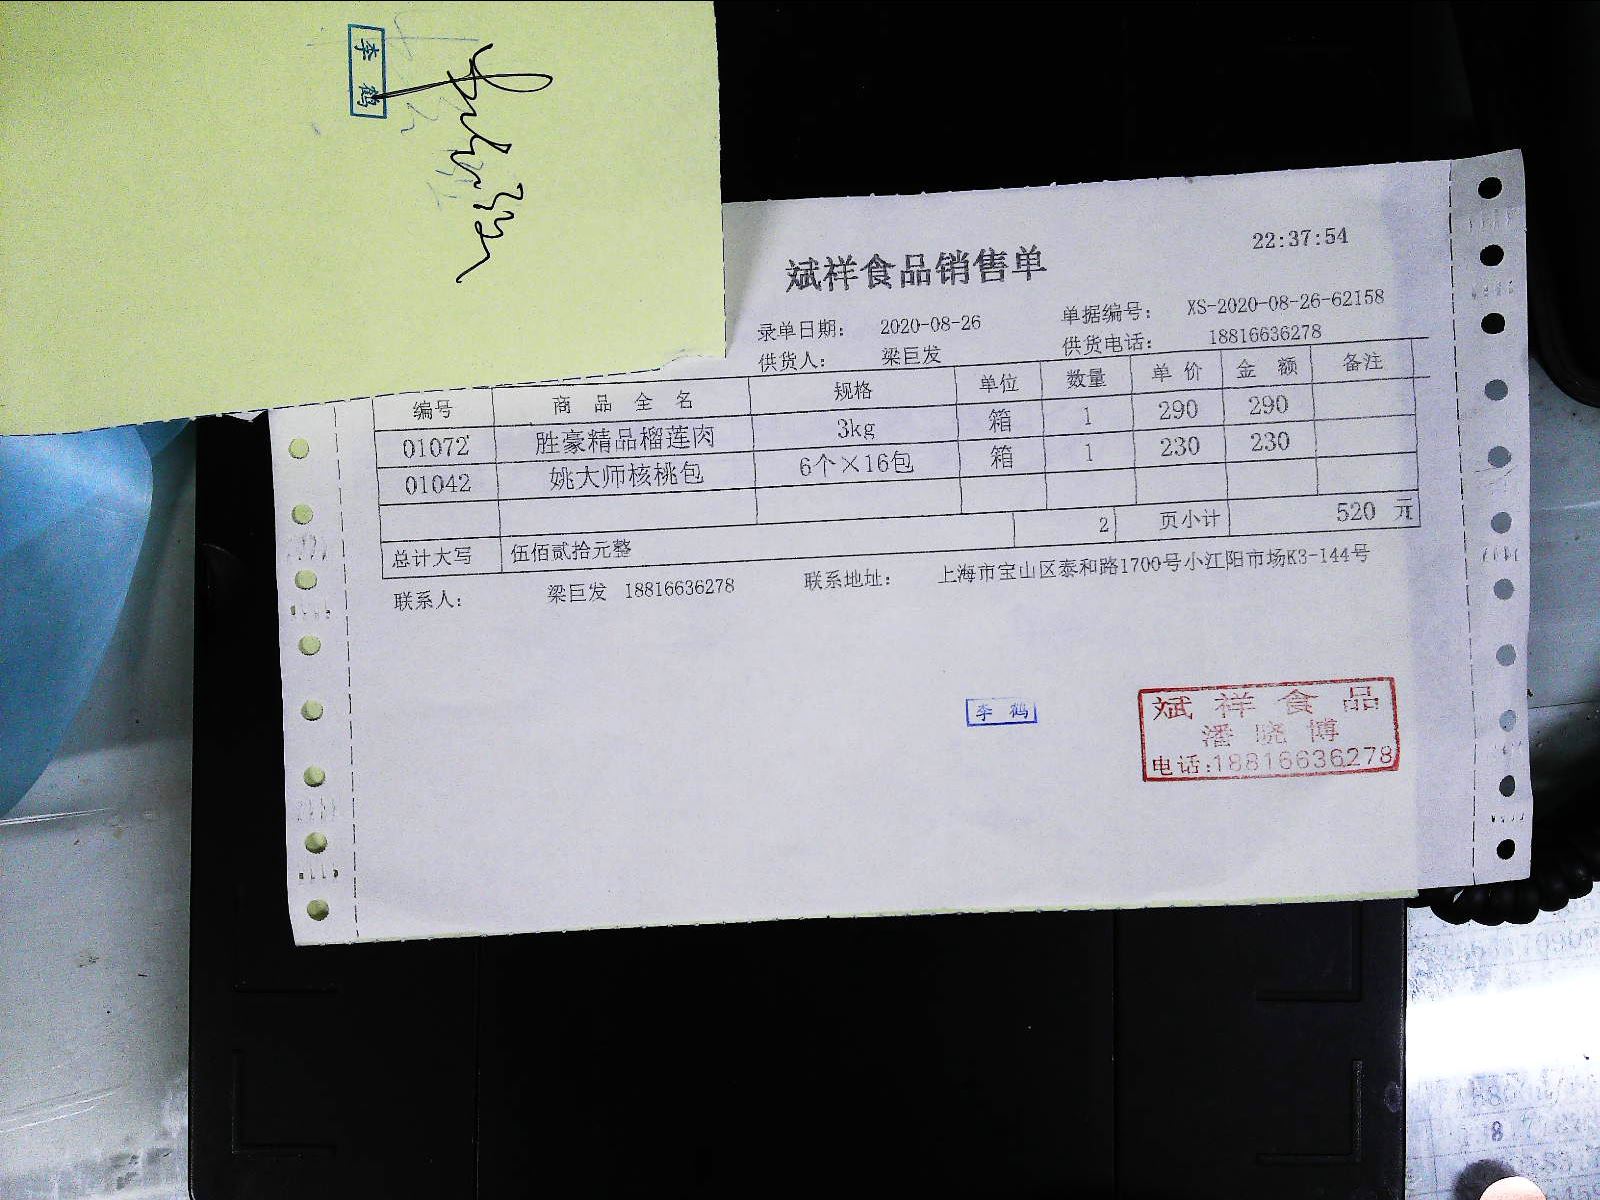 李鹤
22:37:54
斌祥食品销售单
录单日期： 2020-08-26 单据编号： XS-2020-08-26-62158
供货人： 梁巨发 供货电话： 18816636278
编号 商品全名 规格 单位 数量 单价 金额 备注
01072 胜豪精品榴莲肉 3kg 箱 1 290 290
01042 姚大师核桃包 6个×16包 箱 1 230 230
总计大写 伍佰贰拾元整 2 页小计 520 元
联系人： 梁巨发 18816636278 联系地址： 上海市宝山区泰和路1700号小江阳市场K3-144号
李鹤
斌祥食品
潘晓博
电话:18816636278